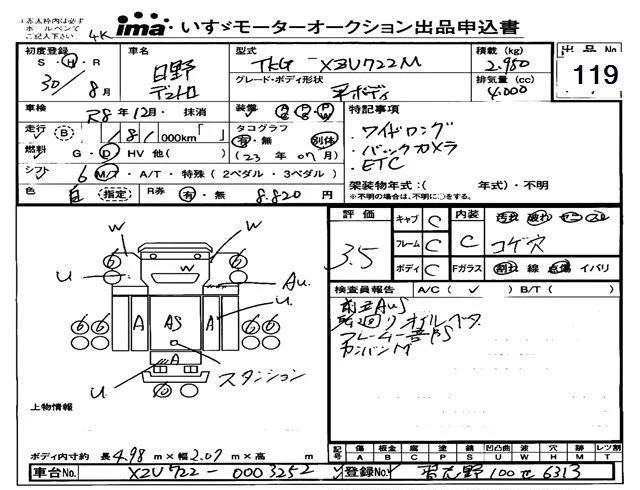 赤太枠内は必ず
ボールペンで
ご記入下さい
4K
ima いすゞモーターオークション出品申込書
初度登録 車名 型式 積載(kg) 出品No
S・H・R 日野 TKG-XZU722M 2.950
30/8月 デュトロ グレード・ボディ形状 排気量(cc) 119
平ボディ 4.000
車検 R8年12月・抹消 装備 AC PS PW 特記事項
走行(B) 181,000km タコグラフ ・ワイドロング
有・無 別体 ・バックカメラ
燃料 G・D HV 他( ) (23年07月) ・ETC
シフト 6 M/T・A/T・特殊(2ペダル・3ペダル)
架装物年式:( 年式)・不明
色 白 指定 R券 有・無 8.820円 ※不明の場合は、不明に○をする。
評価 3.5
キャブ C 内装 C 汚れ 破れ
フレーム C コゲ穴
ボディ C Fガラス 割れ 線 点傷 イバリ
W W
6 6
U W Au
A AS A U
6 6 6 6
A
U
スタンション
10
検査員報告 A/C(✓) B/T( )
カンバンM
上物情報
ボディ内寸約 長4.98m×幅2.07m×高 m
記号 傷 板金 腐 塗 錆 凹凸曲 波 穴 跡 レツ割
A B C P S U W H M T
車台No. XZU722-0003252 登録No. 習志野100せ6313